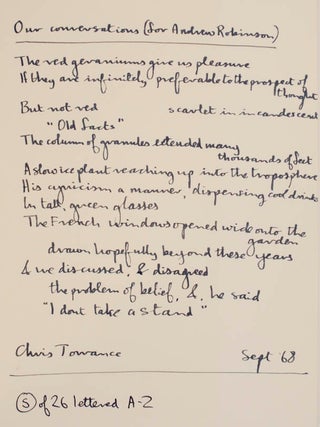 Our conversations (for Andrew Robinson)
The red geraniums give us pleasure
If they are infinitely preferable to the prospect of
thought
But not red scarlet in incandescent
"Old facts"
The column of granules extended many
thousands of feet
A slow ice plant reaching up into the troposphere
His cynicism a manner, dispensing cool drinks
In tall, green glasses
The French windows opened wide onto the
garden
drawn hopefully beyond these years
& we discussed, & disagreed
the problem of belief, &, he said
"I dont take a stand"
Chris Torrance Sept '68
(S) of 26 lettered A-Z